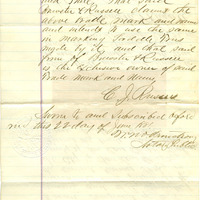 and that said
Hamster & Russell claim the
above trade mark and name
and intend to use the same
in marking Saddle Trees
made by it, and that said
firm of Hamster & Russell
is the exclusive owner of said
trade mark and name
C. J. Russell
Sworn to and subscribed before
me this 22 day of
Notary Public